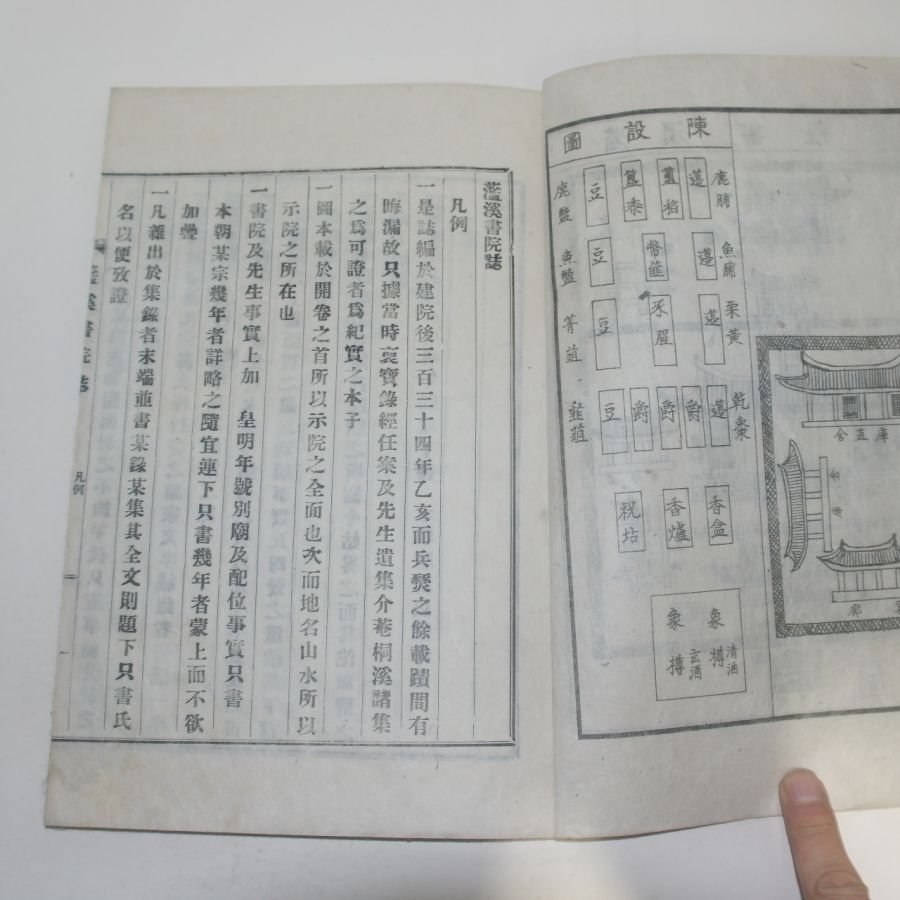 庫直舍
陳設圖
鹿脯
籩
簠稻
簋黍
豆
鹿醢
魚脯
籩
幣篚
豆
魚醢
栗黃
籩
豕腥
豆
菁菹
乾棗
籩
爵
爵
爵
豆
韮菹
香盒
香爐
祝坫
象樽
清酒
象樽
玄酒
灆溪書院誌
凡例
一是誌編於建院後三百三十四年乙亥而兵燹之餘載蹟間有
晦漏故只據當時裒寶錄經任案及先生遺集介菴桐溪諸集
之爲可證者爲紀實之本子
一圖本載於開卷之首所以示院之全面也次而地名山水所以
示院之所在也
一書院及先生事實上加 皇明年號別廟及配位事實只書
本朝某宗幾年者詳略之隨宜連下只書幾年者蒙上而不欲
加疊
一凡雜出於集錄者末端並書某錄某集其全文則題下只書氏
名以便攷證
灆溪書院誌
凡例
一